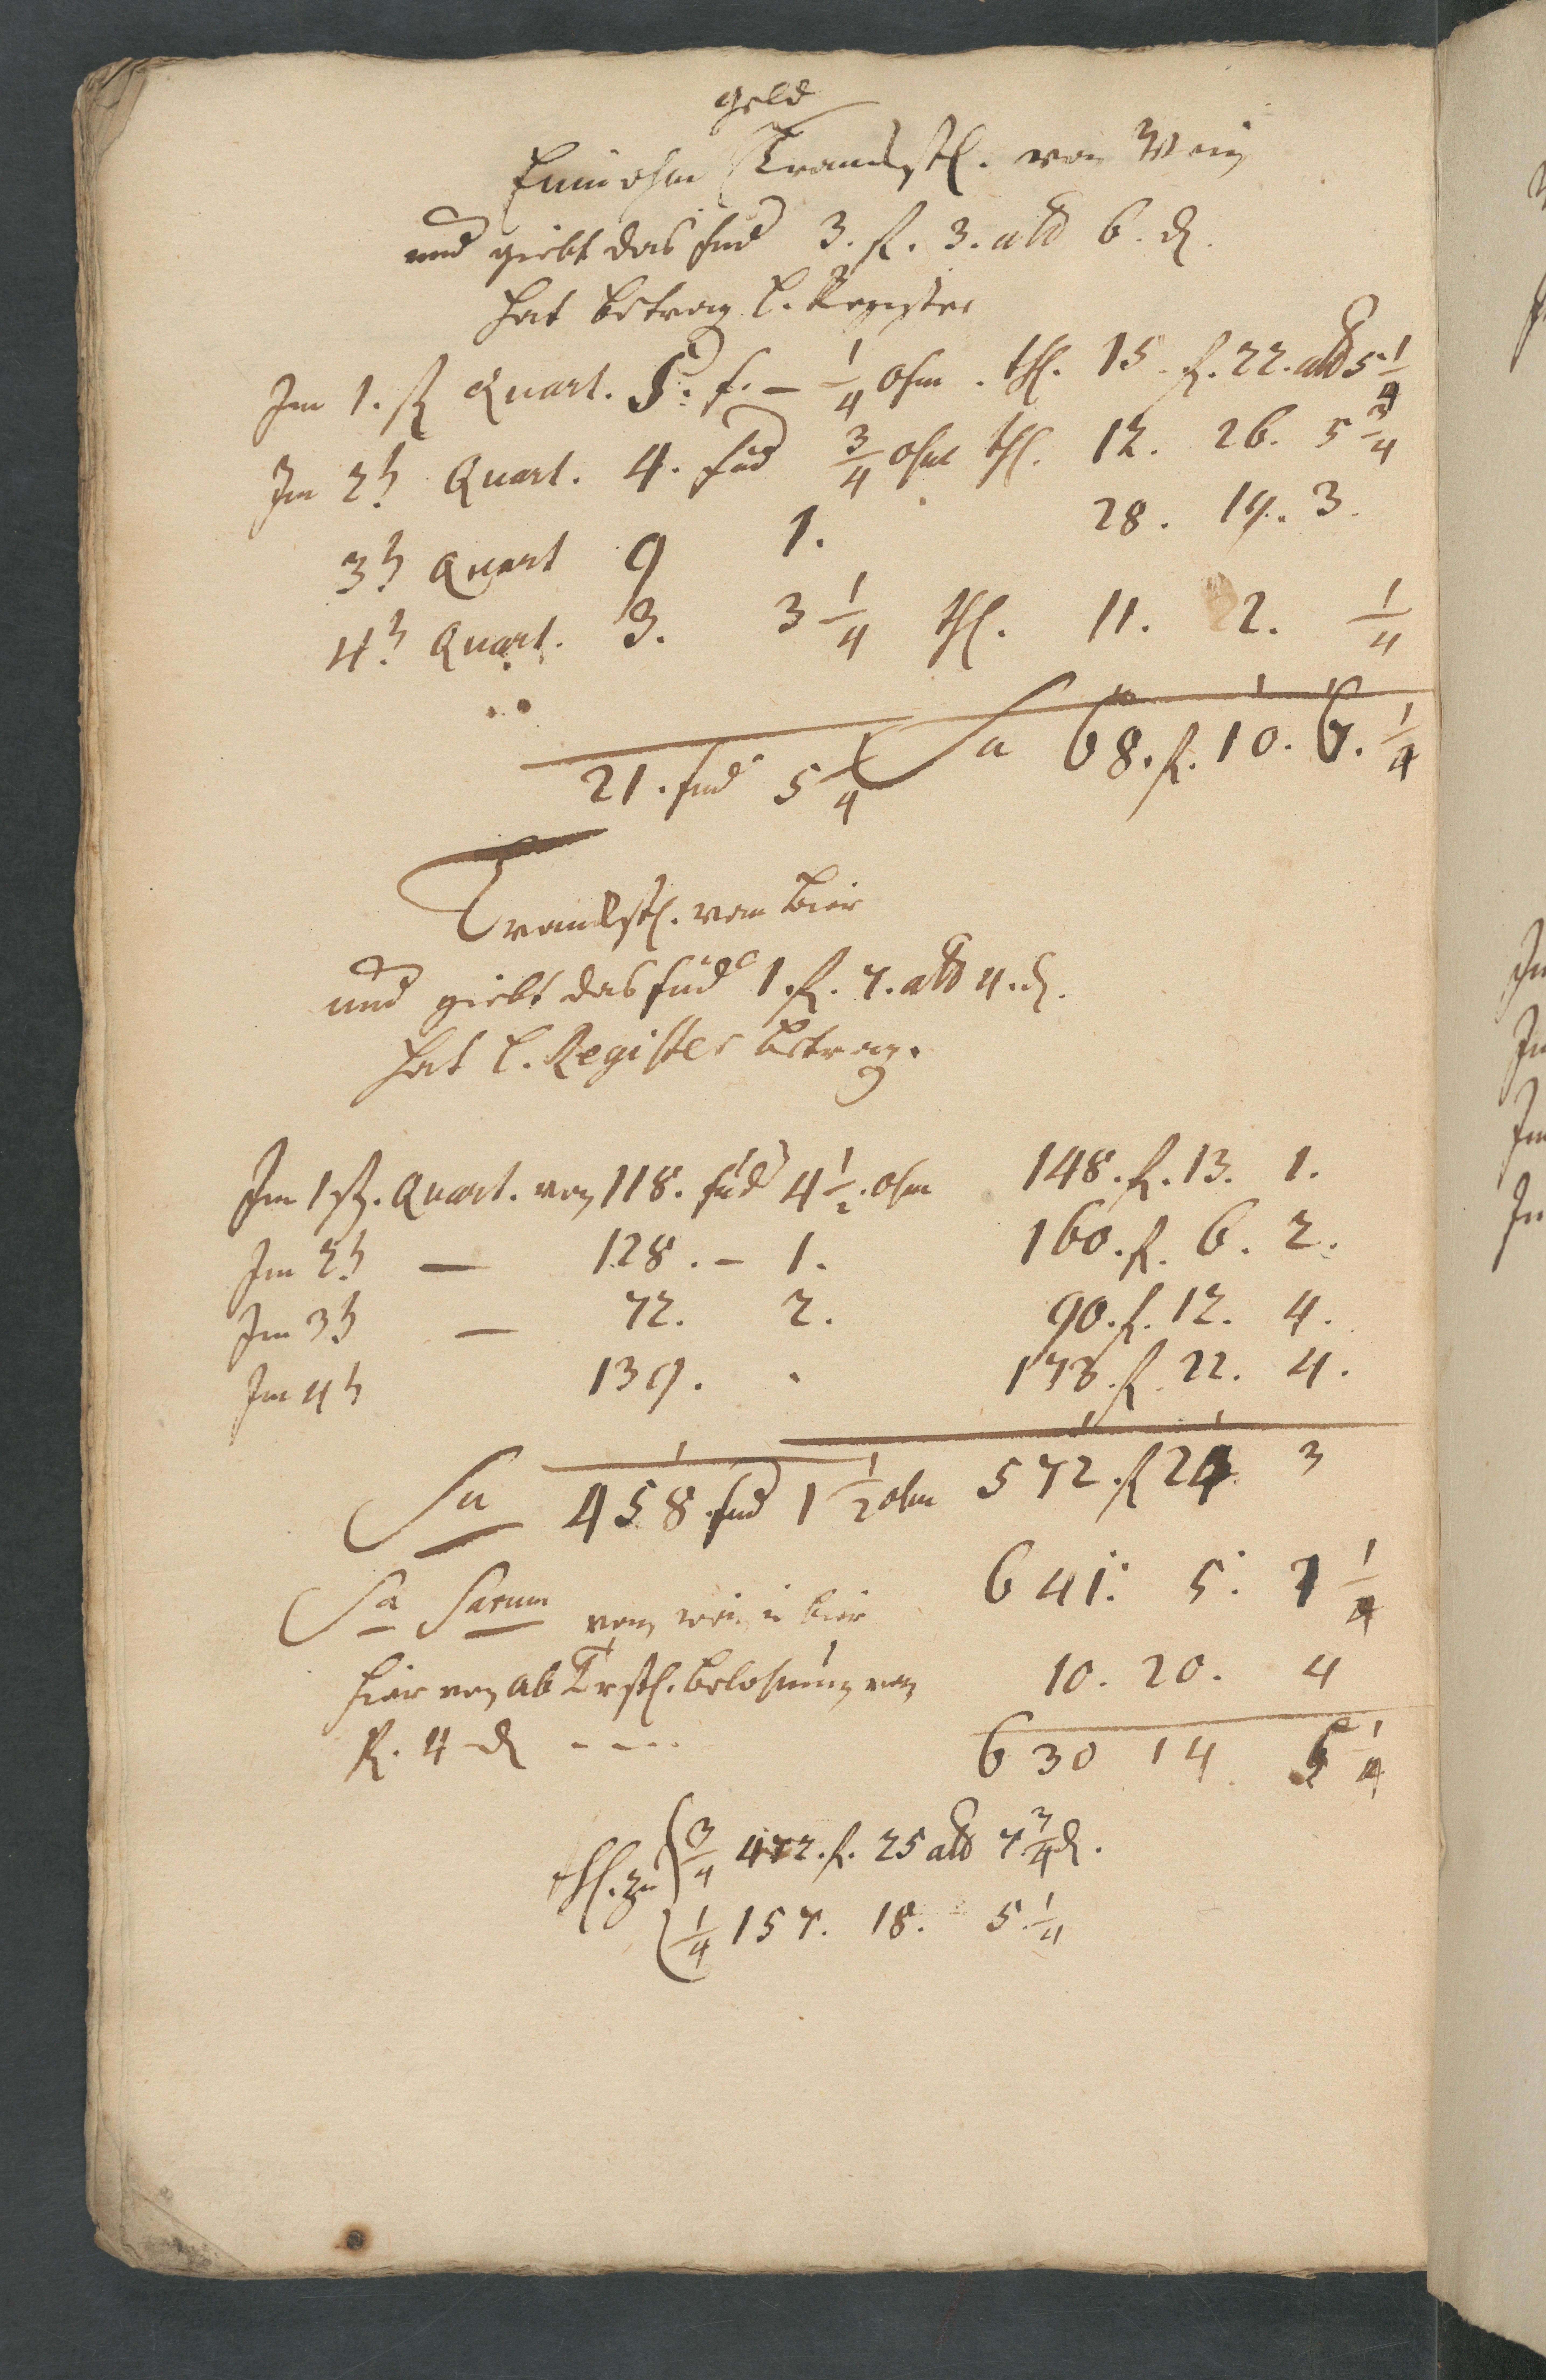 geld
Einnohm Tranckst. von Wein
und giebt das fud 3. f. 3. alb 6. d.
hat betrag l. Register
Im 1. st Quart. 5. f. - 1/4 ohm . th. 15. f. 22. alb 5 1/4
Im 2t Quart. 4. fud 3/4 ohm th. 12. 26. 5 3/4
3t Quart 9 1. 28. 14. 3.
4t Quart. 3. 3 1/4 th. 11. 2. 1/4
Sa 68. f. 10. 6. 1/4
21. fud 5 1/4
Tranckst. vom bier
und giebt das fud 1. f. 7. alb 4. d.
hat l. Register betrag.
Im 1st. Quart. von 118. fud 4 1/2. ohm 148. f. 13. 1.
Im 2t — 128. - 1. 160. f. 6. 2.
Im 3t — 72. 2. 90. f. 12. 4.
Im 4t — 139. . 173. f. 22. 4.
Sa 458. fud 1 1/2 ohm 572. f 24 3
Sa Sarum von wein u bier 641. 5. 1 1/4
hier von ab Trst. belohnung von 10. 20. 4
R. 4 d - - - 630 14. 5 1/4
th. zu 3/4 472. f. 25 alb 7 3/4 d.
1/4 157. 18. 5. 1/4